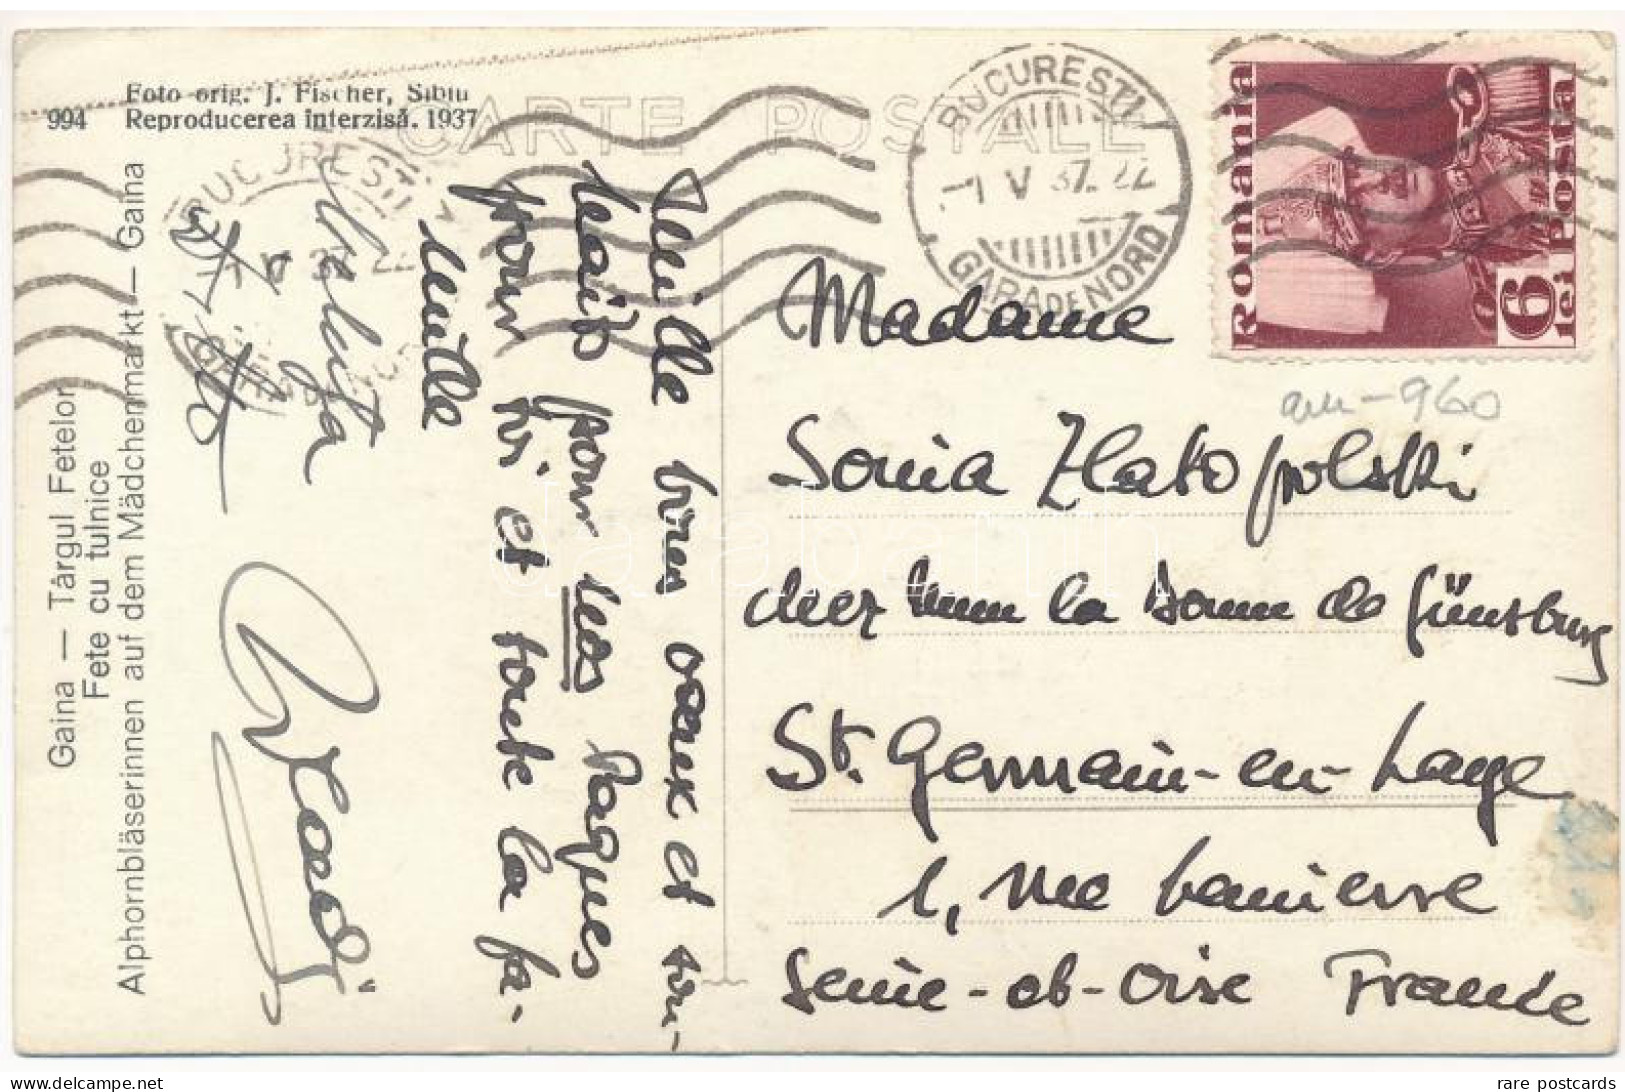 994
Foto orig. J. Fischer, Sibiu
Reproducerea interzisă. 1937
CARTE POSTALE
Gaina — Târgul Fetelor
Fete cu tulnice
Alphornbläserinnen auf dem Mädchenmarkt — Gaina
BUCURESTI
1 V 37. 22
GARA DE NORD
BUCURESTI
1 V 37 22
Romania
Posta
6
lei
am-960
Mille bons vœux et sou-
haits pour les Paques
pour toi et toute la fa-
mille
Madame
Sonia Zlatopolski
chez la Baronne de Günzburg
St. Germain-en-Laye
1, rue
Seine-et-Oise France
darabanth
rare postcards